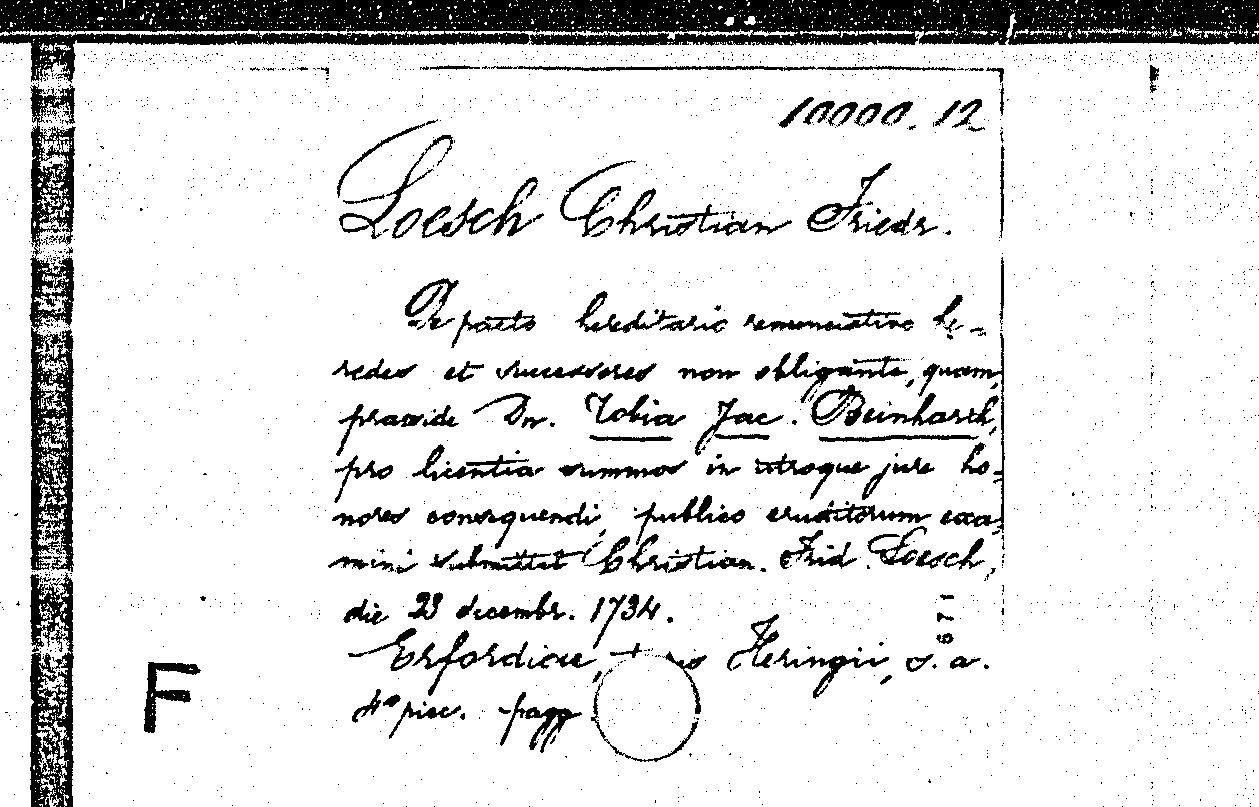 10000. 12
Loesch Christian Friedr.
De pacto hereditario renunciativo he-
redes et successores non obligante, quam,
praeside Dn. Tobia Jac. Reinharth,
pro licentia summos in utroque jure ho-
nores consequendi, publico eruditorum exa-
mini submittit Christian. Frid. Loesch,
die 23 decembr. 1734.
Erfordiae, Heringii, s. a.
4º piec. pagg.
F